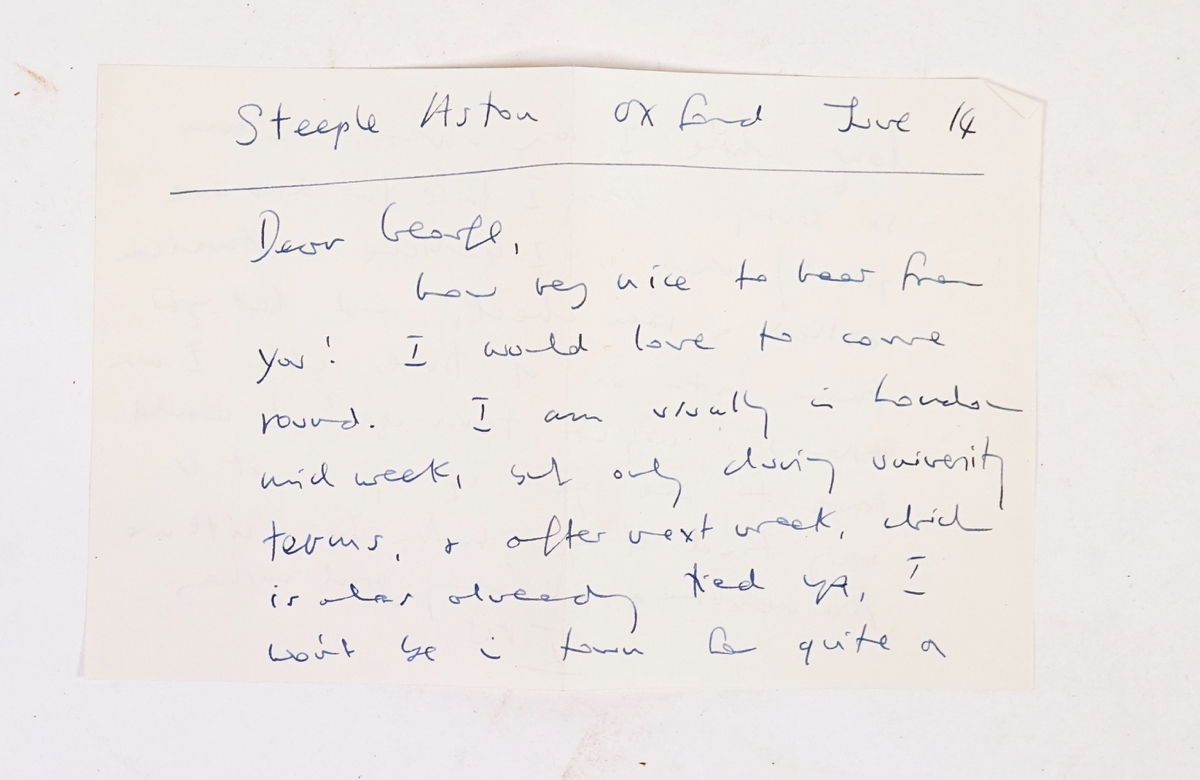 Steeple Aston Oxford June 14
Dear George,
how very nice to hear from
you! I would love to come
round. I am usually in London
mid week, but only during university
terms, & after next week, which
is alas already tied up, I
won't be in town for quite a